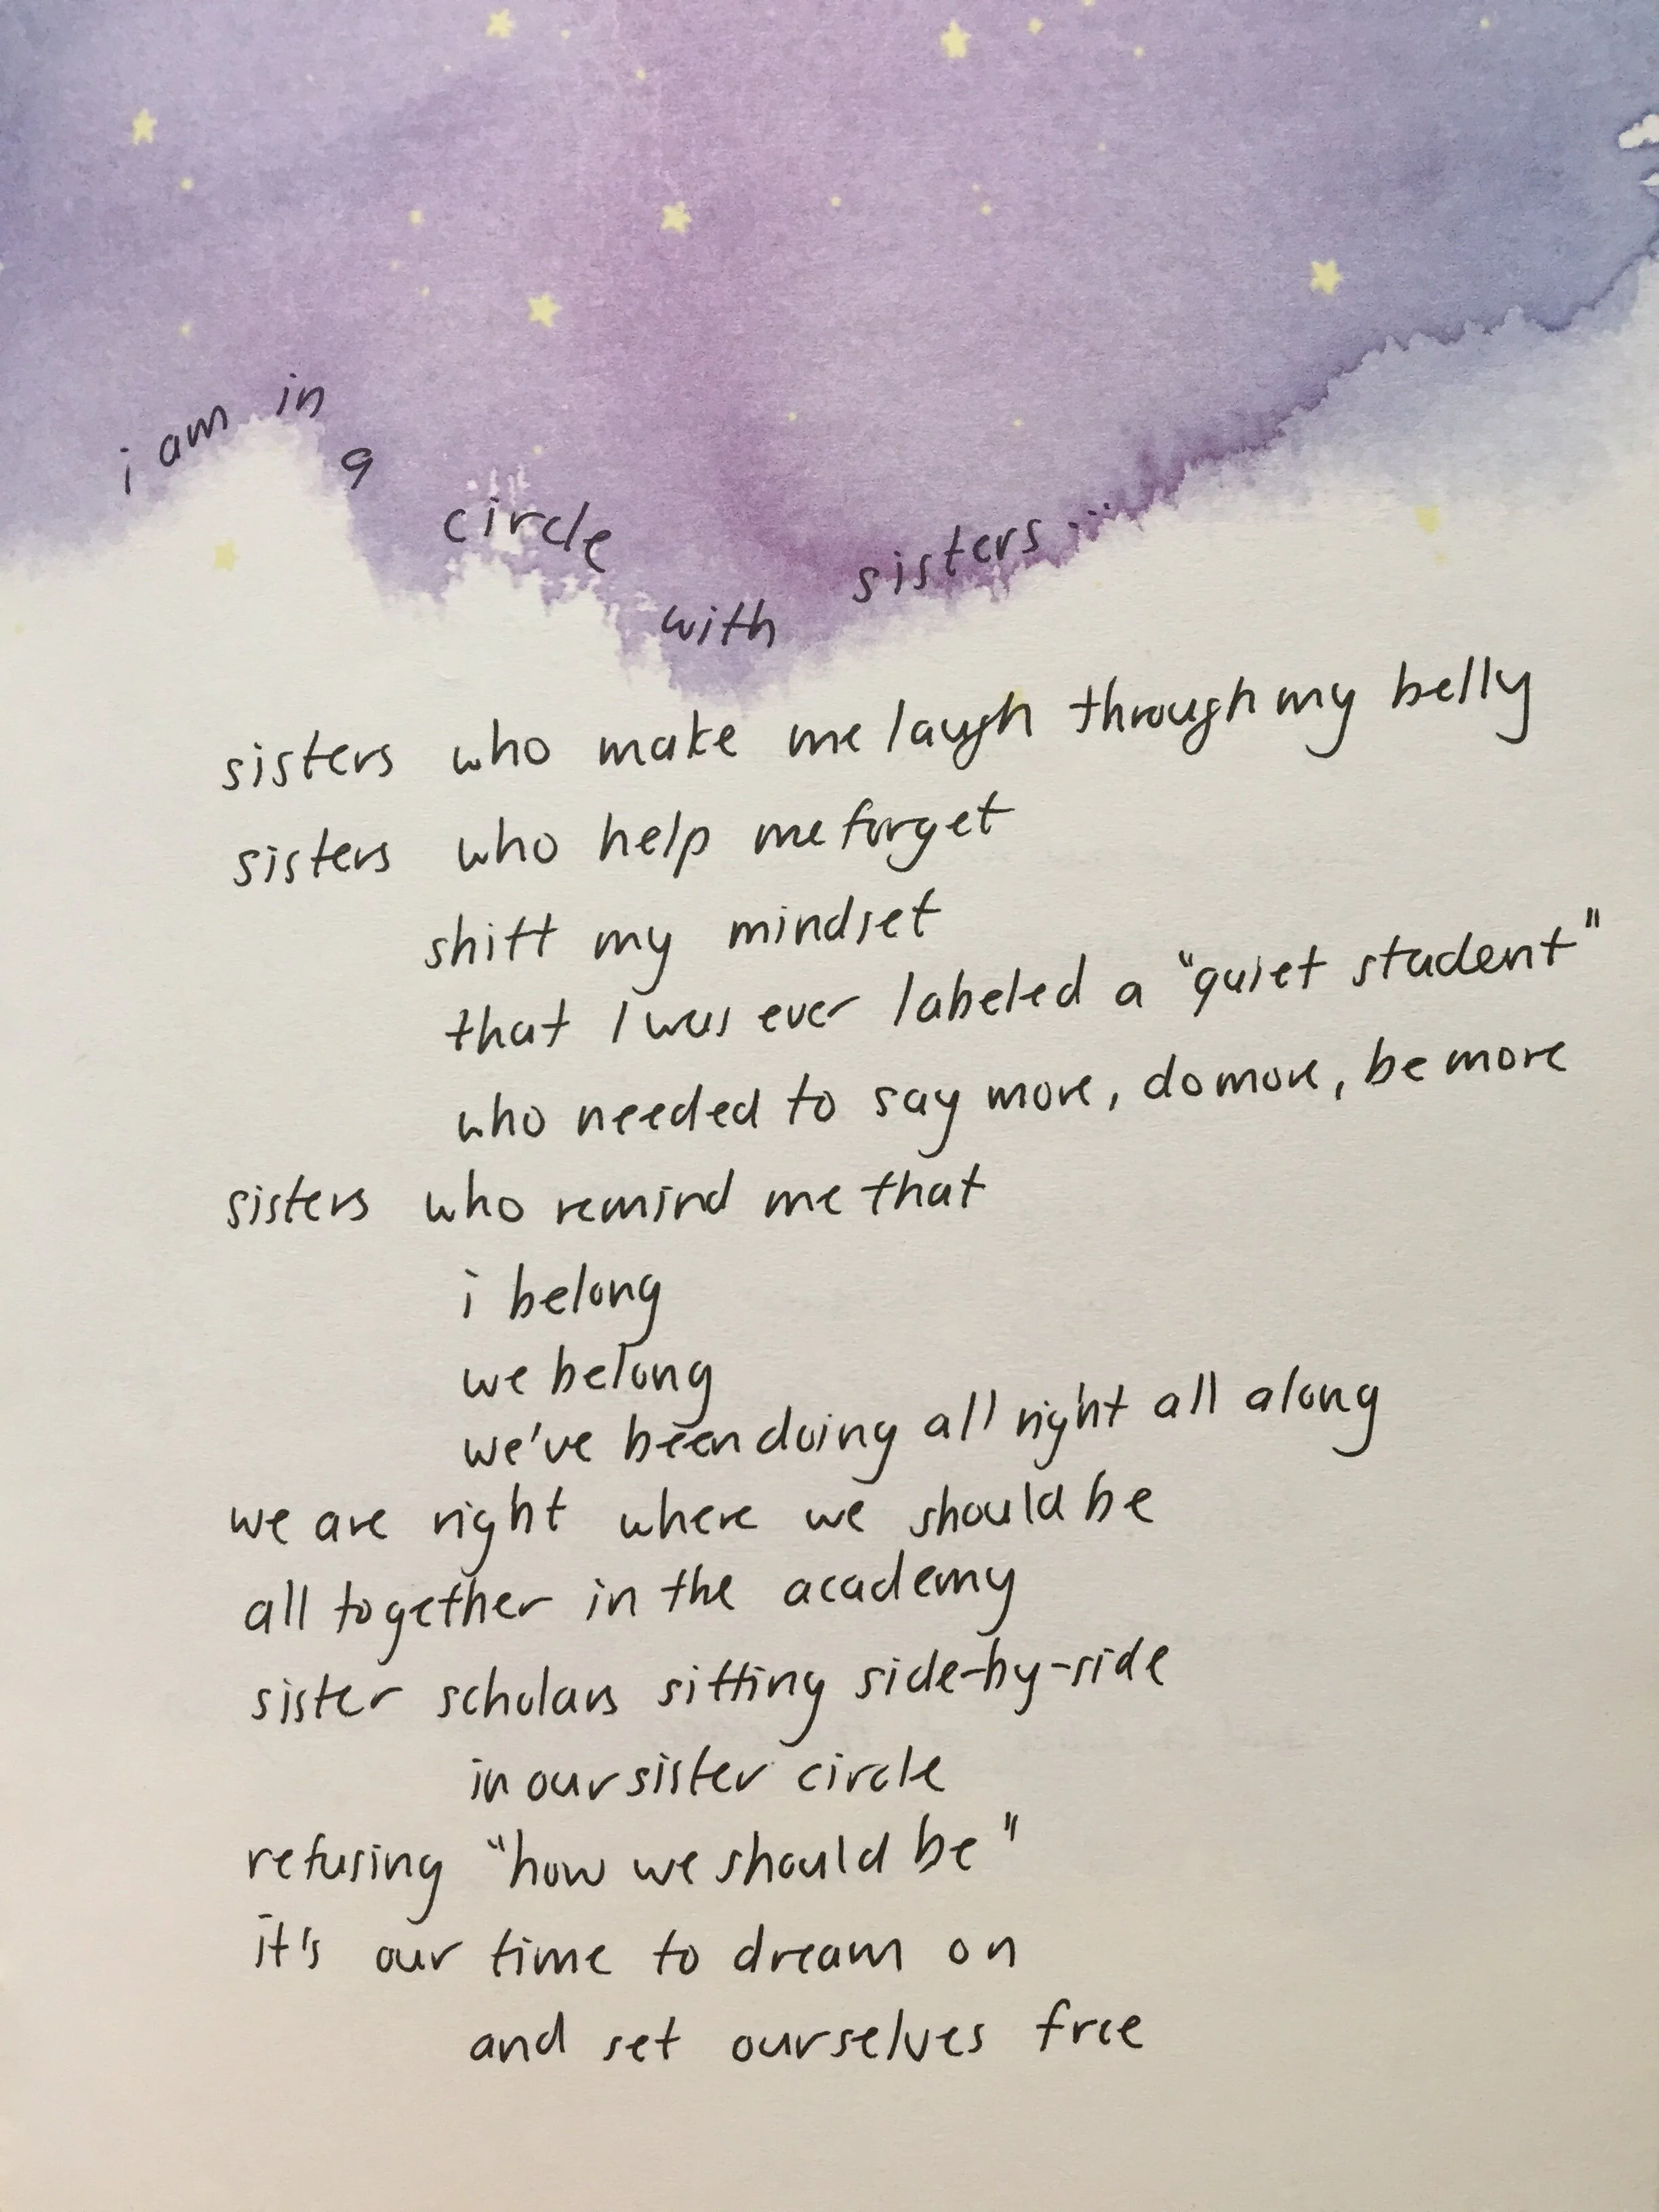 i am in a circle with sisters...
sisters who make me laugh through my belly
sisters who help me forget
shift my mindset
that I was ever labeled a "quiet student"
who needed to say more, do more, be more
sisters who remind me that
i belong
we belong
we've been doing all right all along
we are right where we should be
all together in the academy
sister scholars sitting side-by-side
in our sister circle
refusing "how we should be"
it's our time to dream on
and set ourselves free